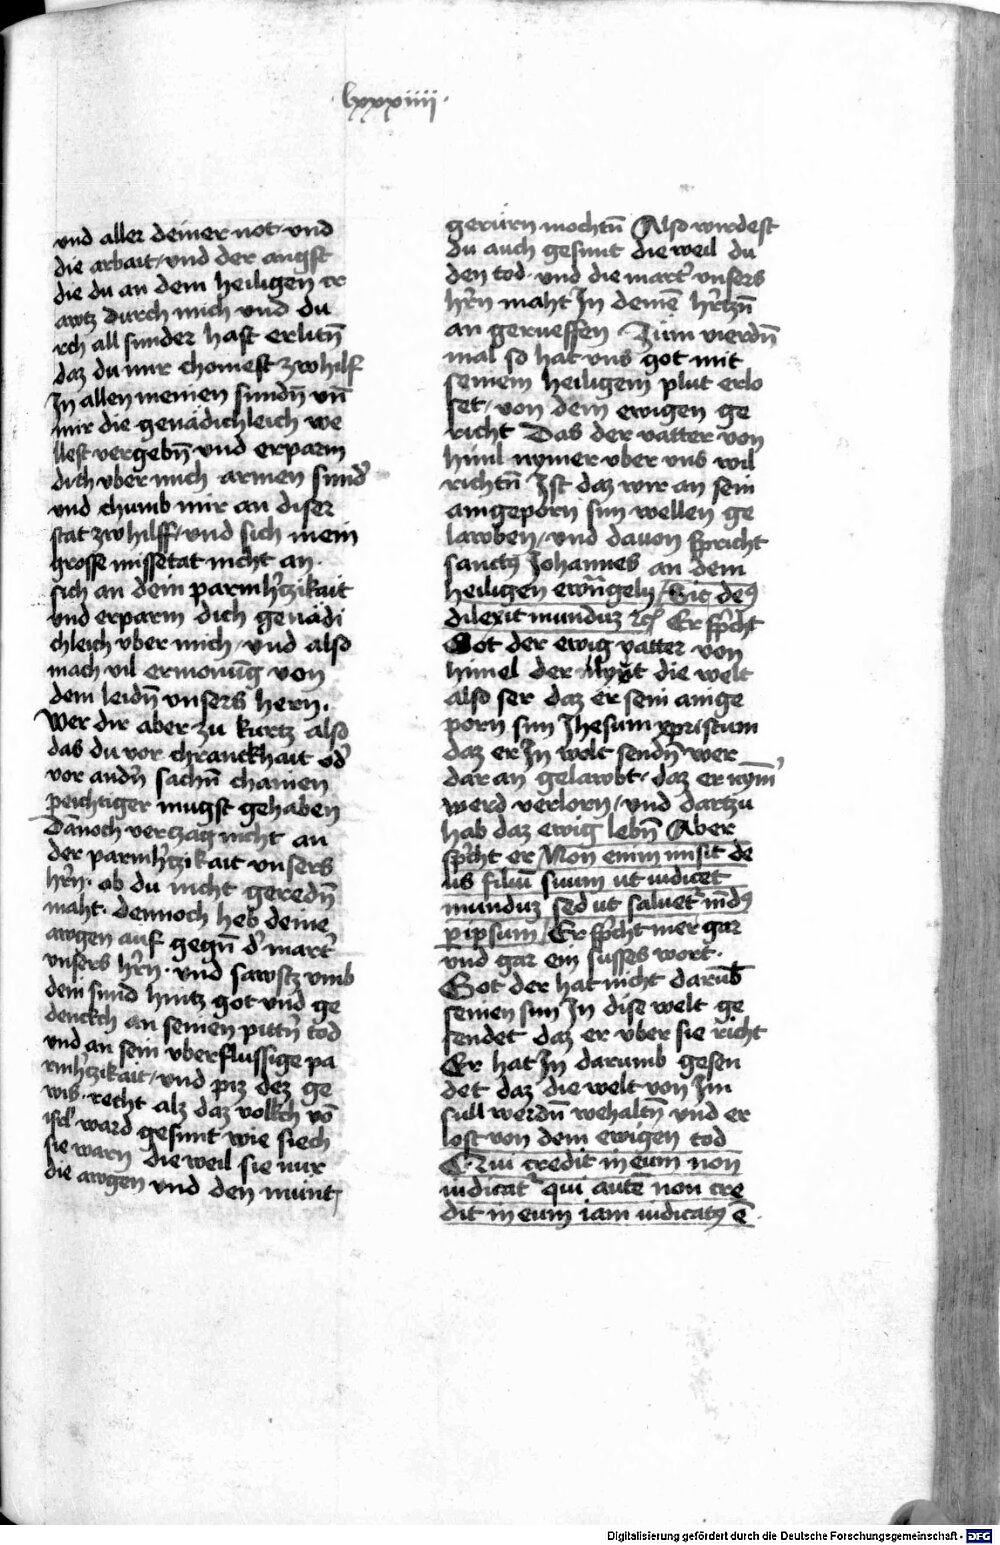 lxxxiiii.
vnd aller deiner not vnd
die arbait / vnd der angst
die du an dem heiligen cr
awtz durch mich vnd du
rch all sunder hast erlitn̄
daz du mir chomest zwhilf
In allen meinen sundn̄ vn̄
mir die genädichleich we
llest vergebn̄ vnd erparm
dich vber mich armen sund̾
vnd chumb mir an diser
stat zwhilff / vnd sich mein
grosse missetat nicht an
sich an dein parmh̾tzikait
vnd erparm dich genädi
chleich vber mich / vnd also
mach vil ermonūg von
dem leidn̄ vnsers hern.
Wer dir aber zu kurtz also
das du vor chranckhait od̾
vor andn̄ sachn̄ chainen
peichtiger mugst gehaben
Dānoch verczag nicht an
der parmh̾tzikait vnsers
hr̄n. ob du nicht geredn̄
maht. dennoch heb deine
awgen auf gegn̄ d̾ mart̾
vnsers hr̄n. vnd sawftz vmb
dein sund hintz got vnd ge
denckch an seinen pittn̄ tod
vnd an sein vberflussige pa
rmh̾tzikait / vnd piz dez ge
wis. recht alz daz volkch vō
isrl̄ ward gesunt wie siech
sie warn die weil sie nur
die awgen vnd den munt
gerürn mochtn̄ Also wirdest
du auch gesunt die weil du
den tod vnd die mart̾ vnsers
hr̄n maht In deinē h̾rtzn̄
an gerueffen Zum vierdn̄
mal so hat vns got mit
seinem heiligem plut erlo
set / von dem ewigen ge
richt Das der vatter von
himl nymer vber vns wil
richtn̄ Ist daz wir an sein
aingeporn sun wellen ge
lawben / vnd dauon spricht
sanctꝰ Johannes an dem
heiligen ewāngely / Sic deꝰ
dilexit munduz ꝛcꝭ Er sp̾cht
Got der ewig vatter von
himel der die welt
also ser daz er sein ainige
porn sun Jhesum xpristum
daz er In welt sendn̄ wer
dar an gelawbt. daz er nym̄
werd verlorn / vnd dartzu
hab daz ewig lebn̄ Aber
sp̾cht er Non enim misit de
us filiū suum ut iudicet
munduz sed ut saluet̾ mūdꝰ
p ipsum / Er sp̾cht mer gar
vnd gar ein susses wort.
Got der hat nicht darūb
seinen sun In dise welt ge
sendet daz er vber sie richt
Er hat In darumb gesen
det daz die welt von Im
sull werdn̄ wehaltn̄ vnd er
lost von dem ewigen tod
Qui credit in eum non
iudicat̾ qui autē non cre
dit in eum iam iudicatꝰ ē.
Digitalisierung gefördert durch die Deutsche Forschungsgemeinschaft - DFG